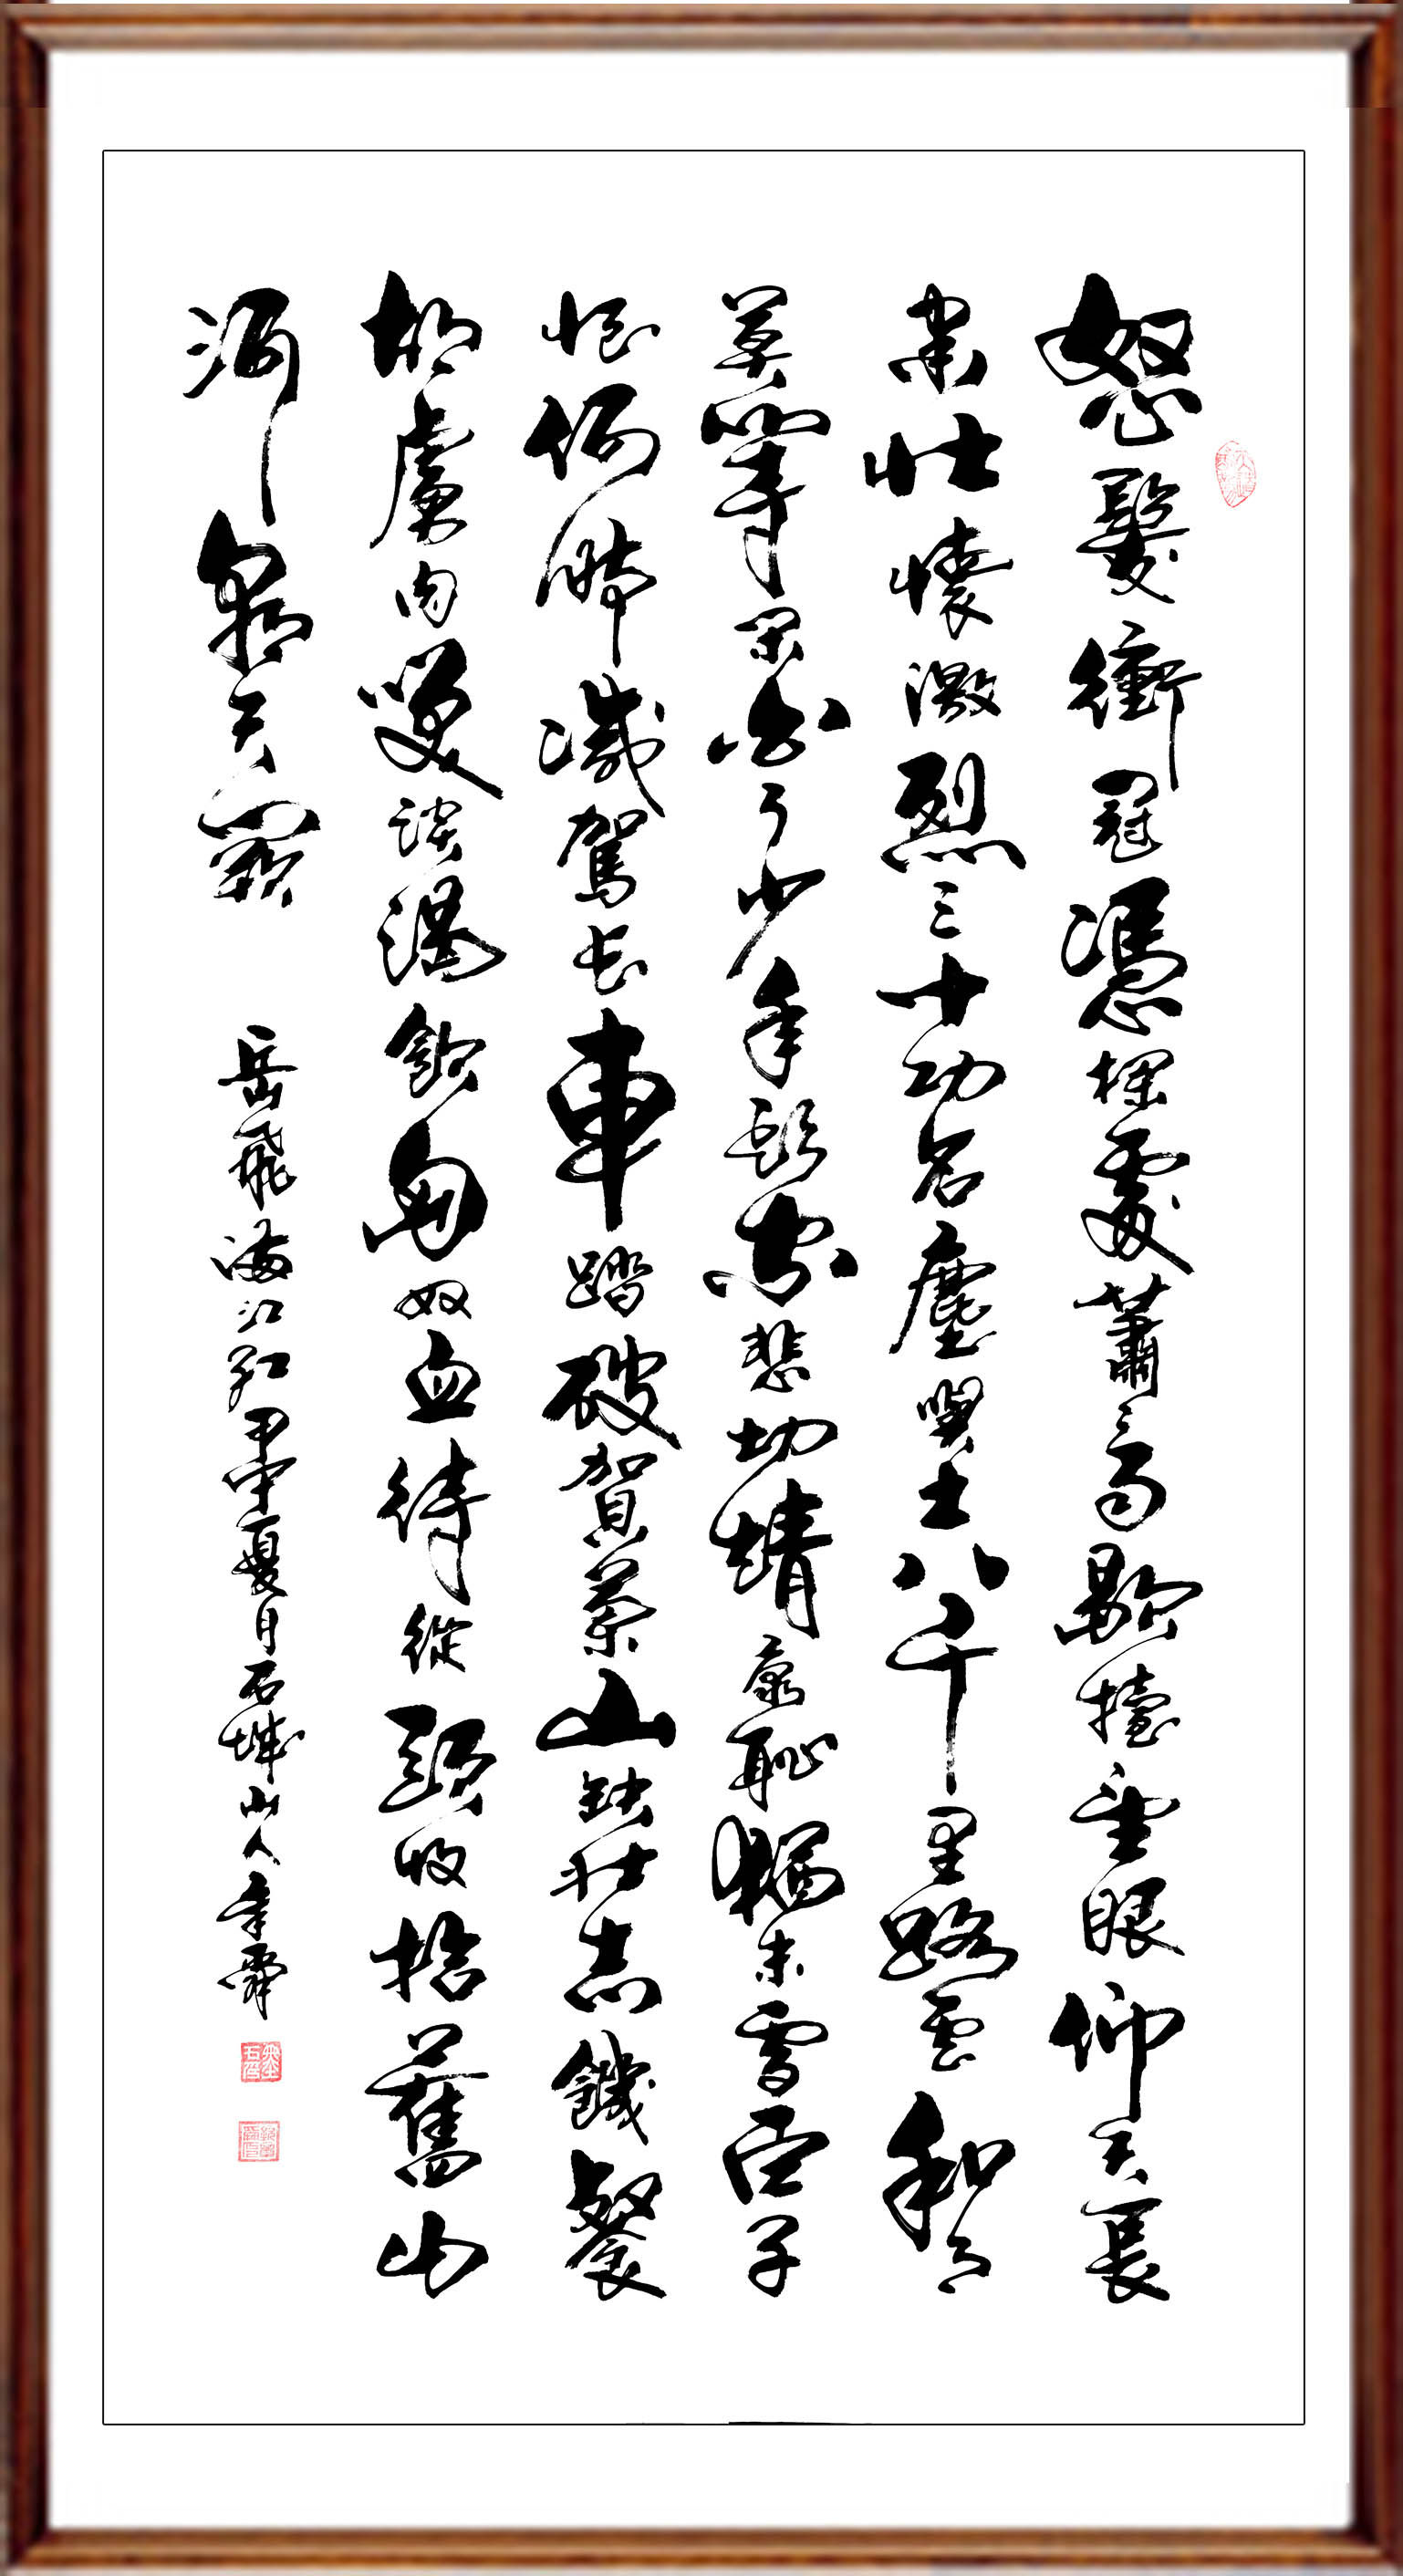 怒髮衝冠憑欄處蕭々雨歇擡望眼仰天長
嘯壯懷激烈三十功名塵與土八千里路雲和月
莫等閑白了少年頭空悲切靖康恥猶未雪臣子
恨何時滅駕長車踏破賀蘭山缺壯志饑餐
胡虜肉笑談渴飲匈奴血待從頭收拾舊山
河朝天闕 岳飛滿江紅甲申夏月石城山人